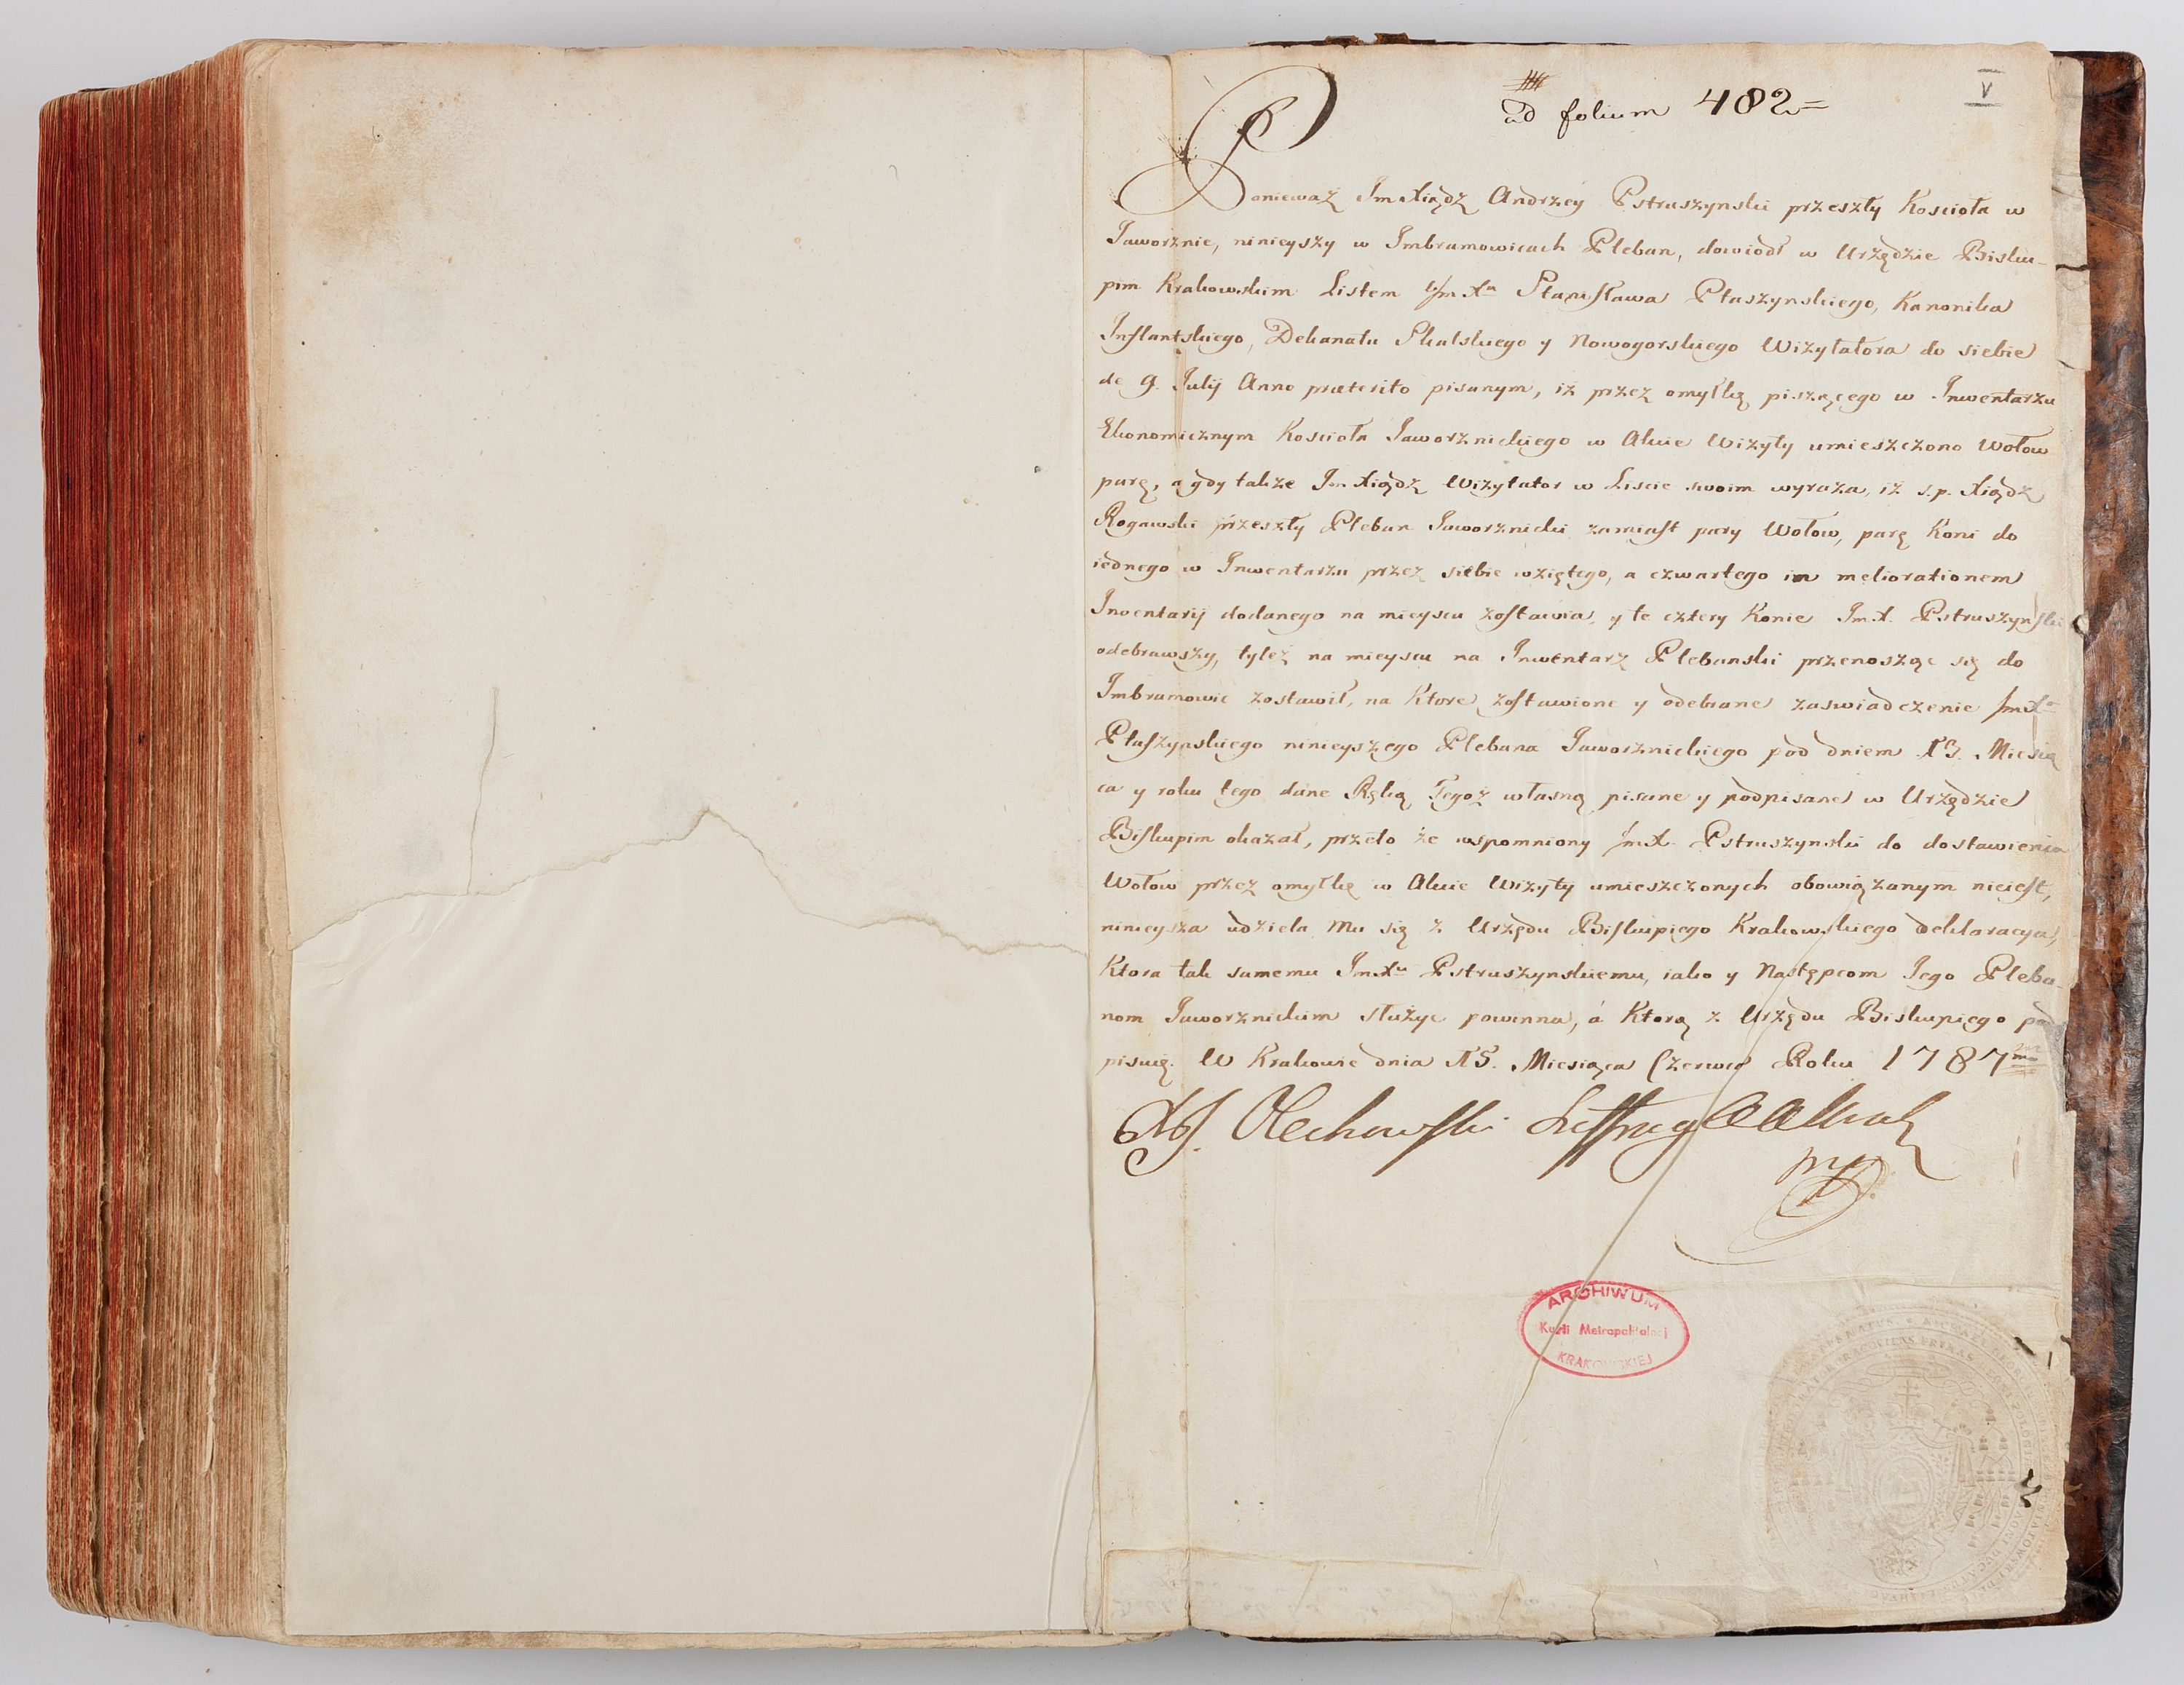 ad folium 482=
V
Poniewaz Jmxiądz Andrzey Pstruszynski przeszły Koscioła w
Jaworznie, ninieyszy w Imbramowicach Pleban, dowiodł w Urzędzie Bisku-
pim Krakowskim Listem Jmxa Stanisława Ptaszynskiego, Kanonika
Inflantskiego, Dekanatu Skalskiego y Nowogorskiego Wizytatora do siebie
de 9. Julij Anno præterito pisanym, iż przez omyłkę piszącego w Inwentarzu
Ekonomicznym Kościoła Jaworznickiego w Akcie Wizyty umieszczono Wołow
parę, a gdy takze Jm Xiądz Wizytator w Liscie swoim wyraza, iż s.p. Xiądz
Rogawski przeszły Pleban Jaworznicki zamiast pary Wołow, parę Koni do
iednego w Inwentarzu przez siebie wziętego, a czwartego in meliorationem
Inventarij dodanego na mieyscu zostawia, y te cztery Konie Jm.X. Pstruszynski
odebrawszy, tyleż na mieyscu na Inwentarz Plebanski przenosząc się do
Imbramowic zostawił, na Ktore zostawione y odebrane zaswiadczenie JmXa
Ptaszynskiego ninieyszego Plebana Jaworznickiego pod dniem 13. Miesią
ca y roku tego dane Ręką Tegoż własną pisane y podpisane w Urzędzie
Biskupim okazał, przeto że wspomniony JmX. Pstruszynski do dostawienia
Wołow przez omyłkę w Akcie Wizyty umieszczonych obowiązanym nieiest,
ninieysza udziela Mu się z Urzędu Biskupiego Krakowskiego deklaracya,
Ktora tak samemu JmXu Pstruszynskiemu, iako y Następcom Jego Pleba-
nom Jaworznickim służyc powinna, á Ktorą z Urzędu Biskupiego pod
pisuię. W Krakowie dnia 15. Miesiąca Czerwca Roku 1787mo
XJ. Olechowski Suffrag
mp
ARCHIWUM
Kurii Metropolitalnej
KRAKOWSKIEJ